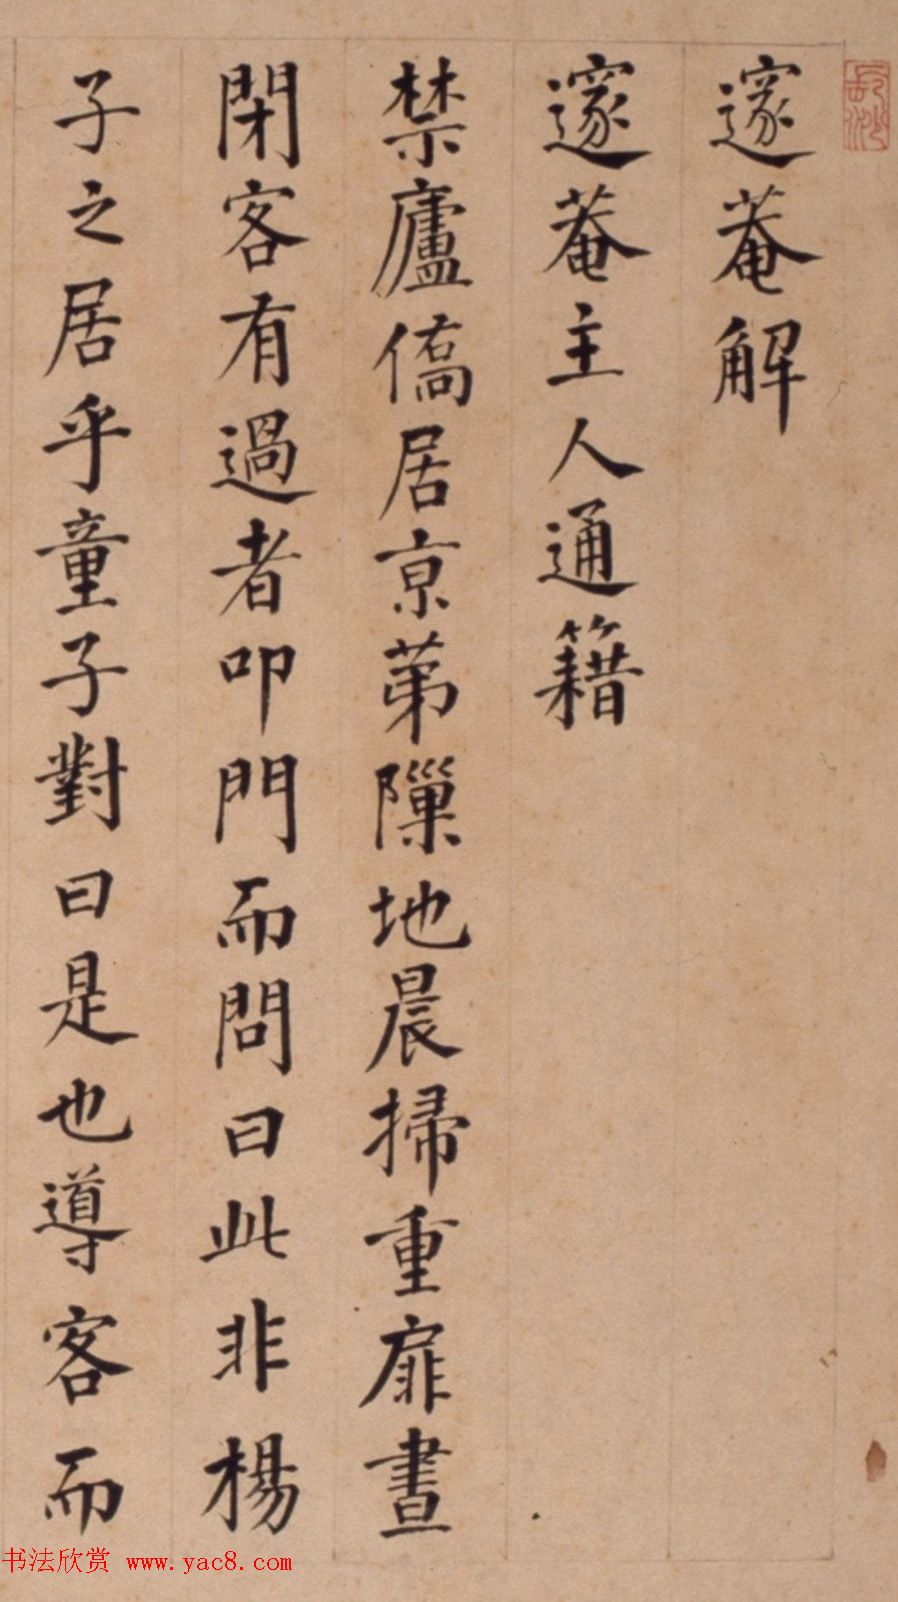 邃菴解
邃菴主人通籍
禁廬僑居京第隟地晨掃重扉晝
閉客有過者叩門而問曰此非楊
子之居乎童子對曰是也導客而
书法欣赏 www.yac8.com